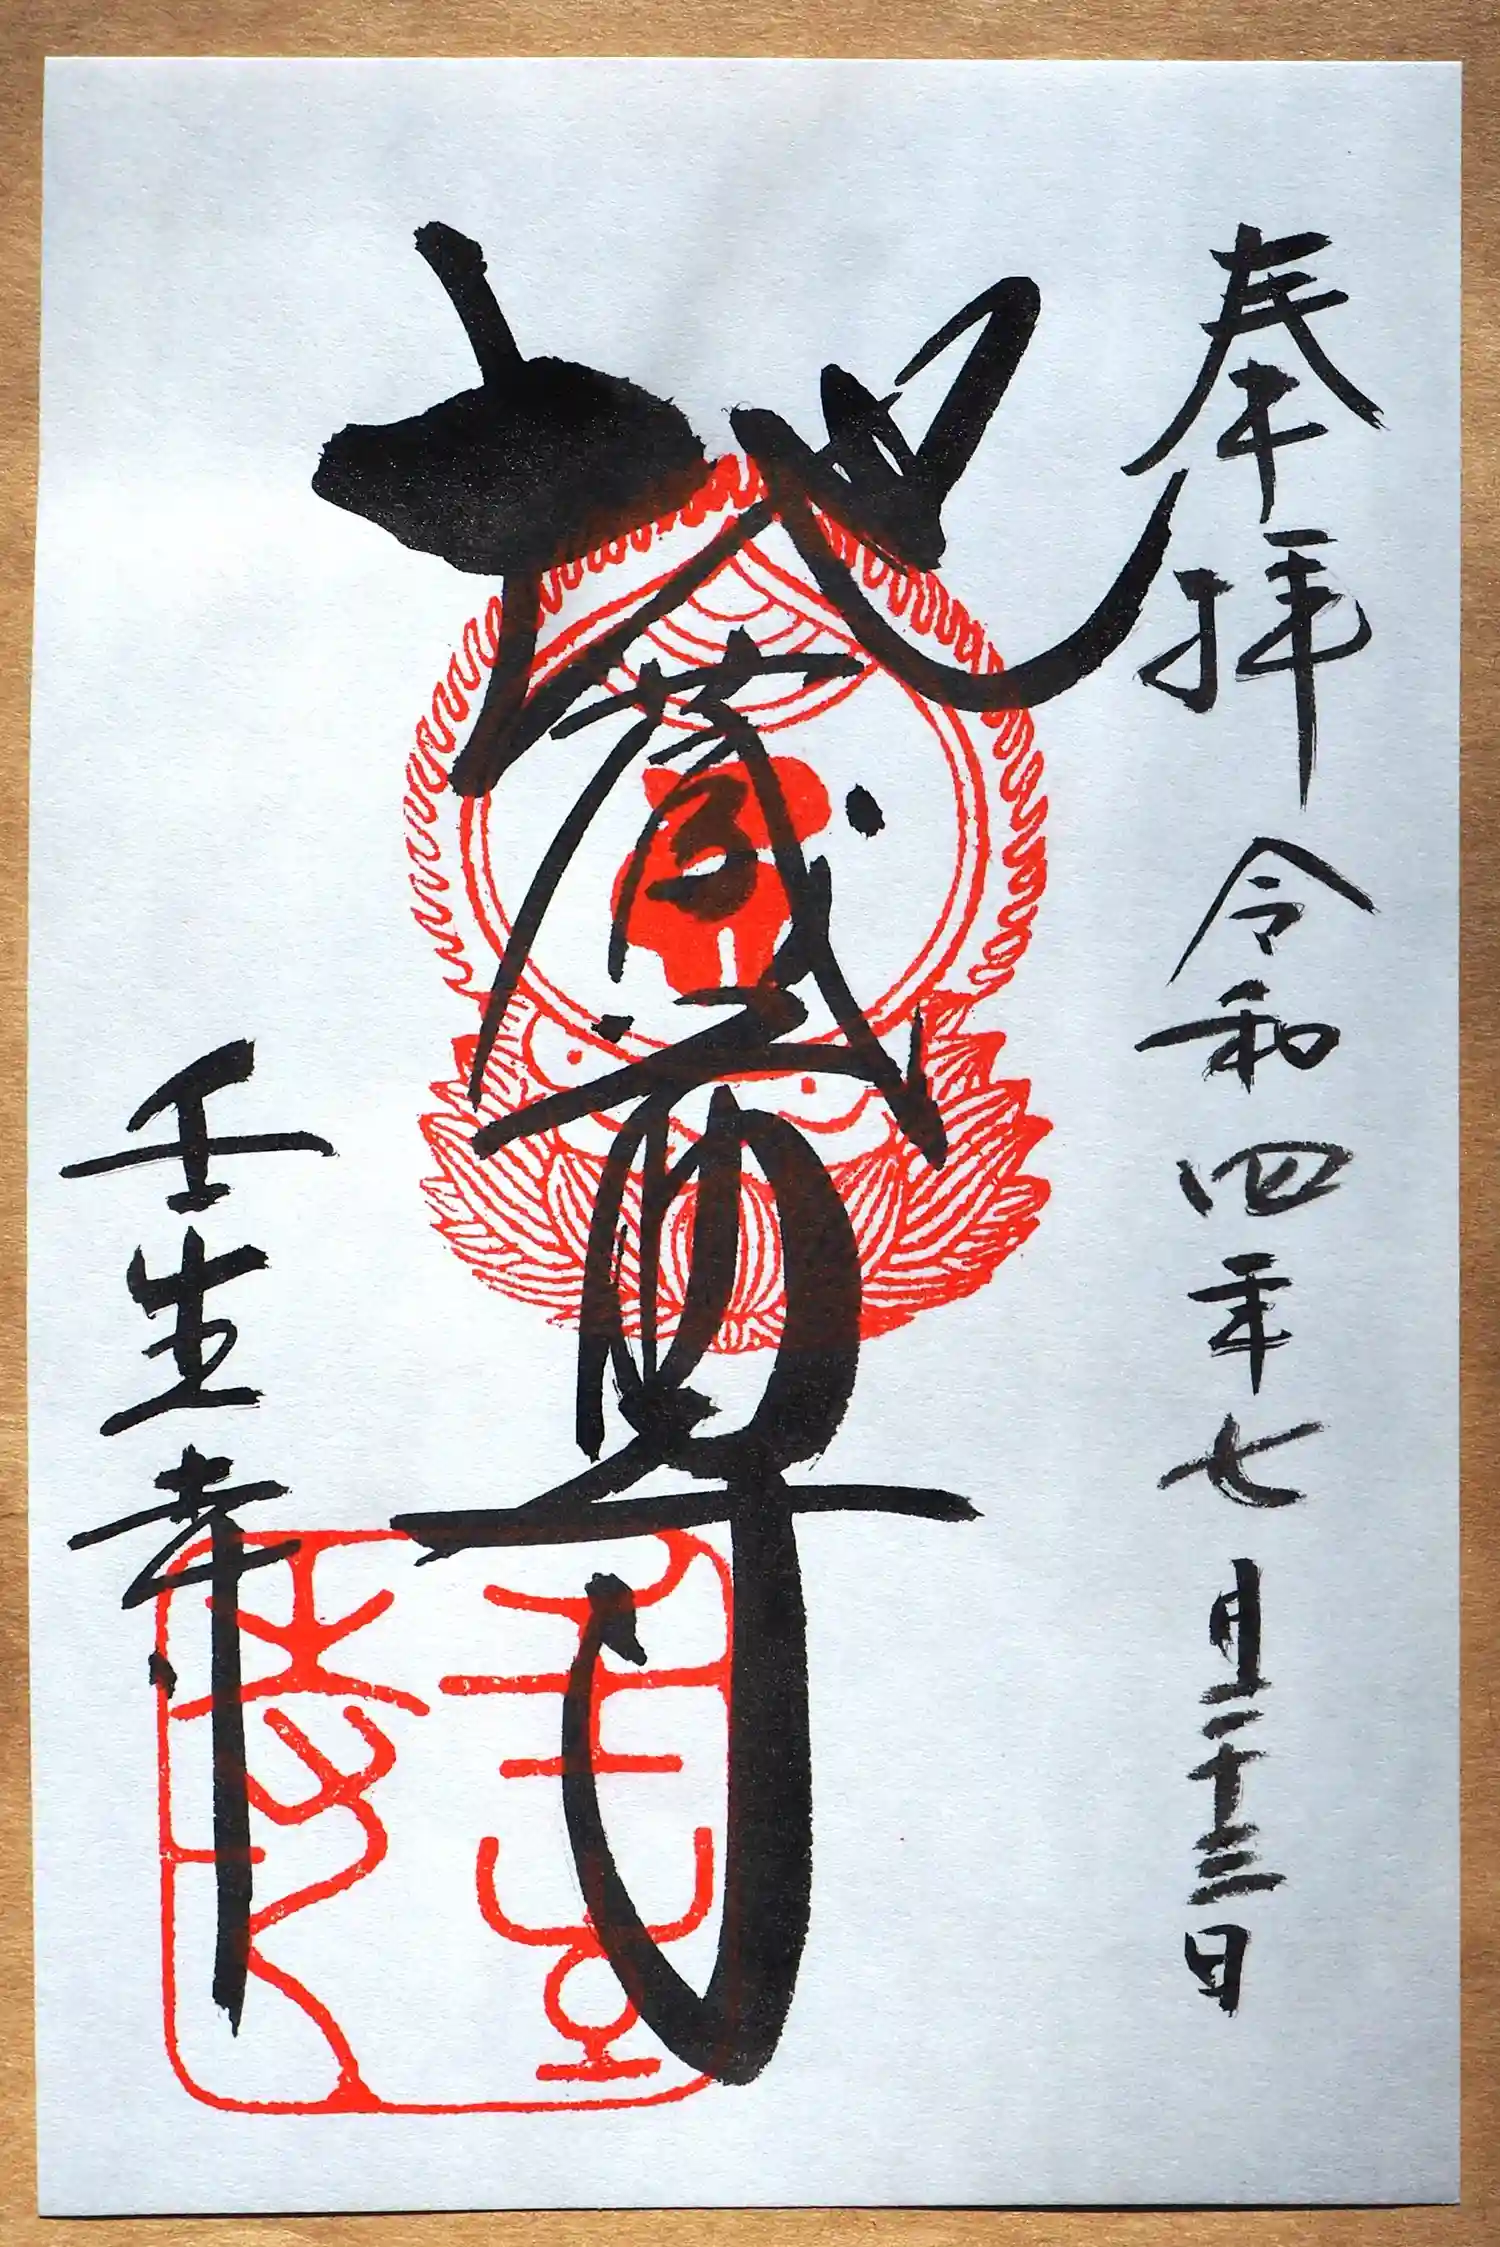 奉拝 令和四年七月二十三日
地蔵尊
壬生寺